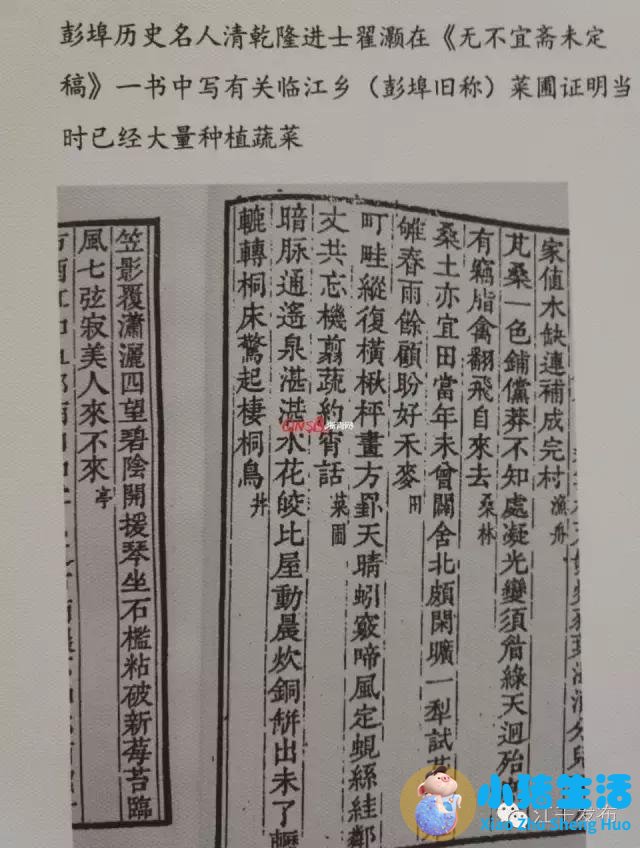 彭埠历史名人清乾隆进士翟灏在《无不宜斋未定
稿》一书中写有关临江乡（彭埠旧称）菜圃证明当
时已经大量种植蔬菜
家值木缺連補成完村 漁舟
芃桑一色鋪儻莽不知處凝光變須眉綠天迥殆
有竊脂禽翻飛自來去 桑林
桑土亦宜田當年未曾闢舍北頗閑曠一犁試
雊春雨餘顧盼好禾麥 田
町畦縱復橫楸枰畫方罫天晴蚓竅啼風定蜆絲絓鄰
丈共忘機翦蔬約宵話 菜圃
暗脉通遙泉湛湛水花皎比屋動晨炊銅缾出未了
轆轉桐床驚起棲桐鳥 井
笠影覆瀟灑四望碧陰開援琴坐石檻粘破新莓苔臨
風七弦寂美人來不來 亭
小猪生活
Xiao Zhu Sheng Huo
江干发布